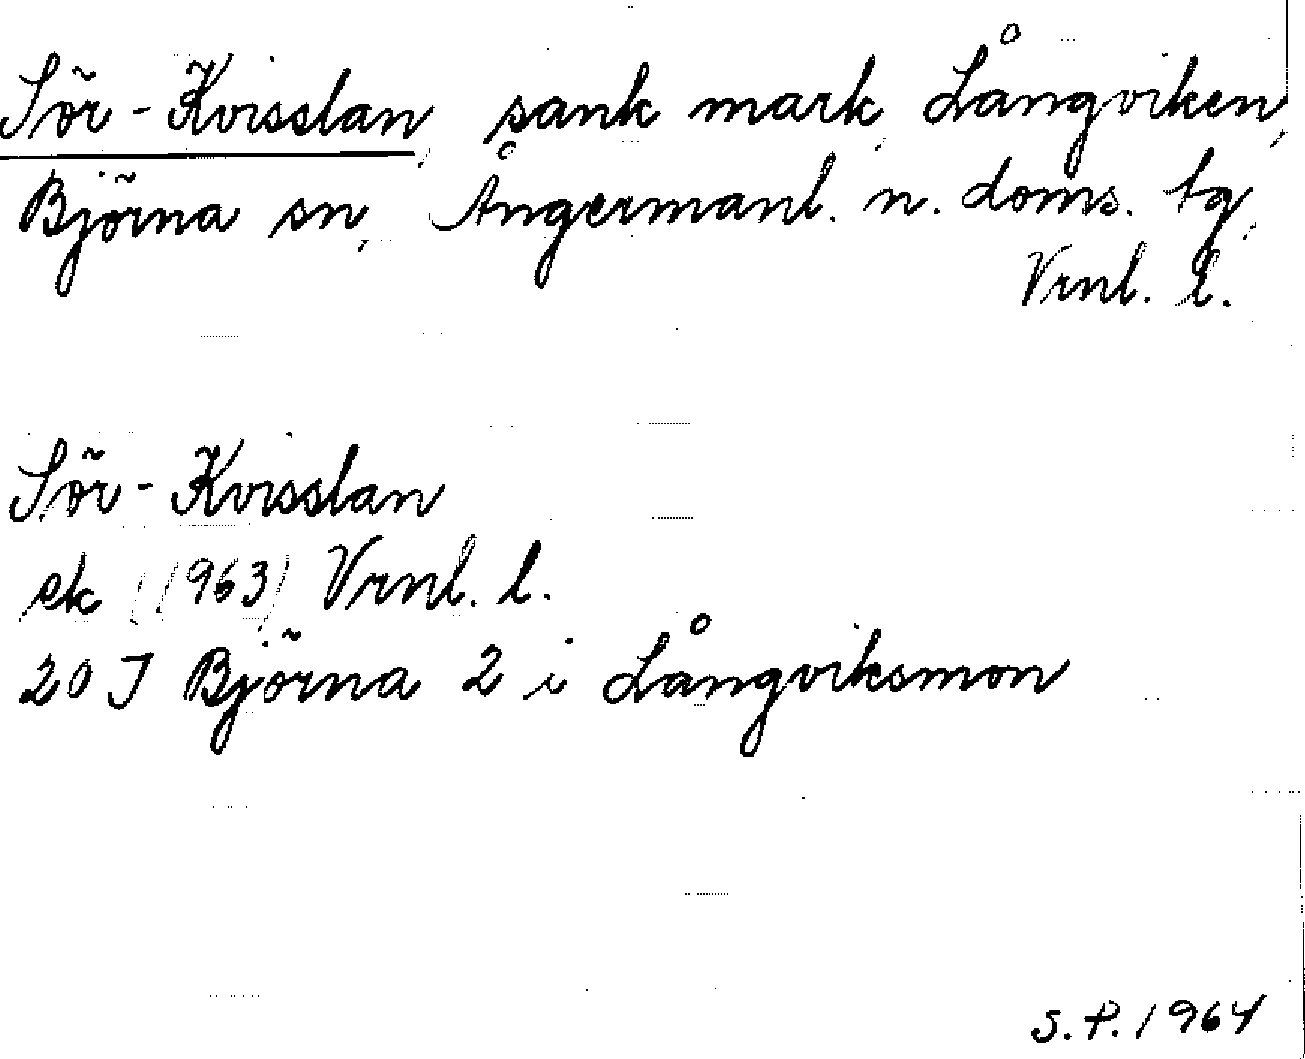 Sör-Kvisslan, sank mark, Långviken,
Björna sn, Ångermanl. n. doms. tg,
Vrnl. l.
Sör-Kvisslan
ek (1963) Vrnl. l.
20 J Björna 2 i Långviksmon
S.P. 1964